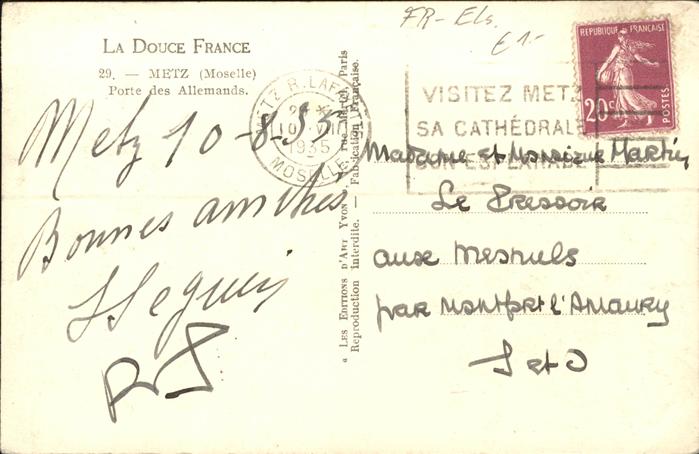 FR-Els.
€1.-
LA DOUCE FRANCE
29. — METZ (Moselle)
Porte des Allemands.
Metz 10-8-35
Bonnes amitiés
RÉPUBLIQUE FRANÇAISE
20c
POSTES
METZ R. LAFA
1935
MOSELLE
VISITEZ METZ
SA CATHÉDRALE
SON ESPLANADE
Madame et Monsieur Martin
Le Pressoir
aux Mesnuls
par Montfort l'Amaury
S et O
LES EDITIONS D'ART YVON, rue Martel, Paris
Reproduction interdite. — Fabrication Française.